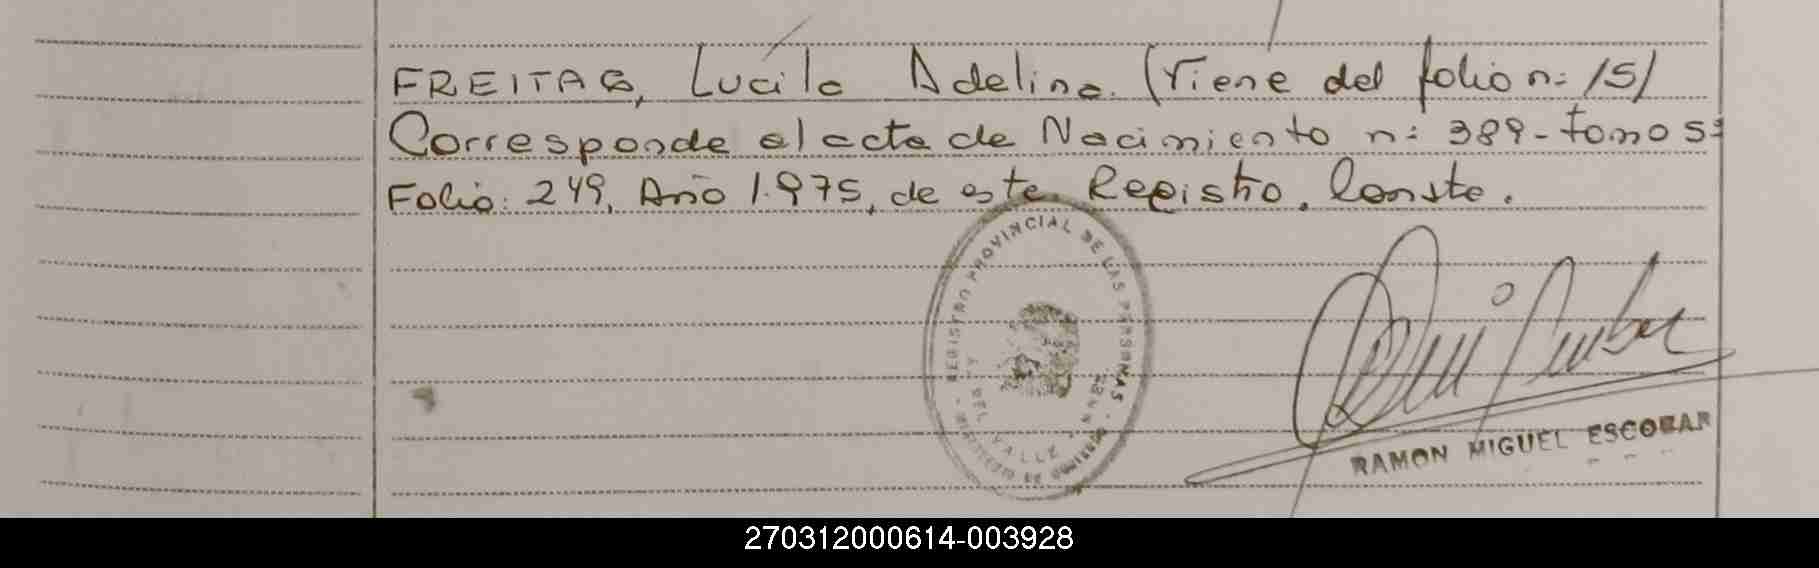 FREITAG, Lucila Adelina. (Viene del folio n: 15)
Corresponde al acta de Nacimiento n: 389 - Tomo 5:
Folio: 249, Año 1.975, de este Registro. Conste.
REGISTRO PROVINCIAL DE LAS PERSONAS
DEL VALLE
RAMON MIGUEL ESCOBAR
270312000614-003928